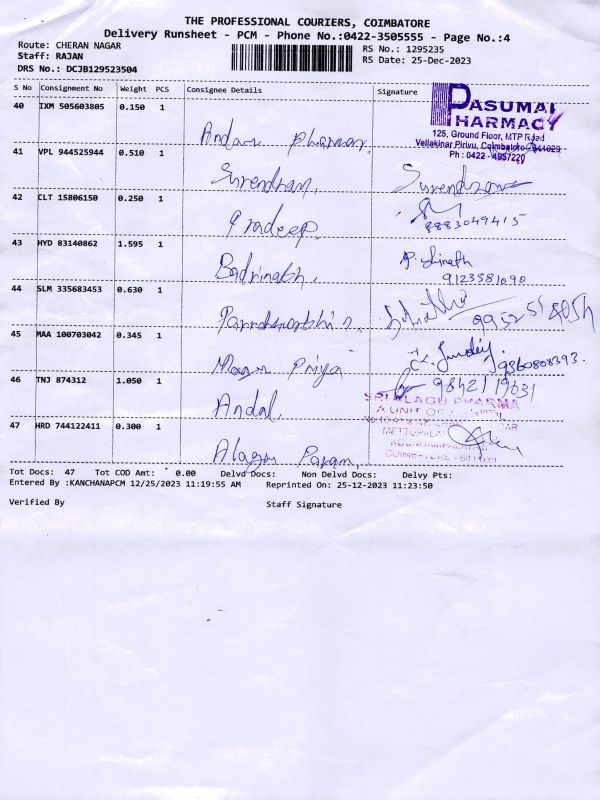 THE PROFESSIONAL COURIERS, COIMBATORE
Delivery Runsheet - PCM - Phone No.:0422-3505555 - Page No.:4
Route: CHERAN NAGAR RS No.: 1295235
Staff: RAJAN RS Date: 25-Dec-2023
DRS No.: DCJB129523504
S No Consignment No Weight PCS Consignee Details Signature
PASUMAI
PHARMACY
125, Ground Floor, MTP Road
Vellakinar Pirivu, Coimbatore-641029
Ph : 0422 - 4957220
40 IXM 505603805 0.150 1
41 VPL 944525944 0.510 1
Surendran. Surendran
42 CLT 15806150 0.250 1
Pradeep. 8883049415
43 HYD 83140862 1.595 1
Badrinath. 9123581090
44 SLM 335683453 0.630 1
45 MAA 100703042 0.345 1
Priya 9360808393.
46 TNJ 874312 1.050 1
Andal.
SRI ALAGU PHARMA
A UNIT OF
47 HRD 744122411 0.300 1
COIMBATORE - 641029
Tot Docs: 47 Tot COD Amt: 0.00 Delvd Docs: Non Delvd Docs: Delvy Pts:
Entered By :KANCHANAPCM 12/25/2023 11:19:55 AM Reprinted On: 25-12-2023 11:23:50
Verified By Staff Signature